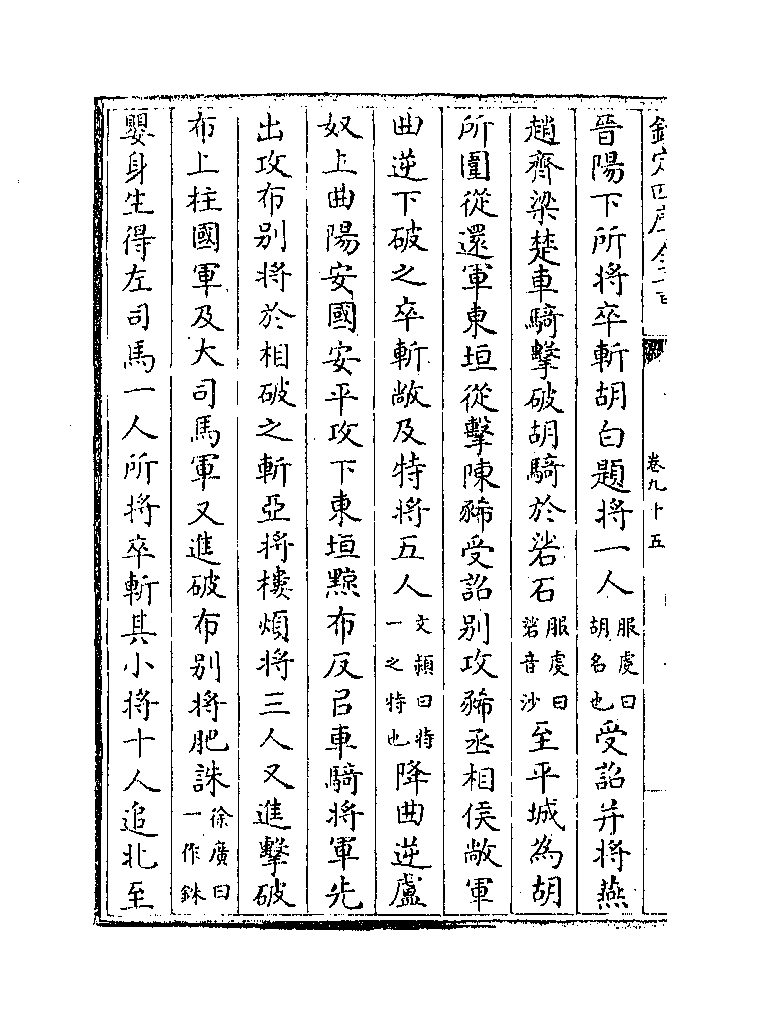 欽定四庫全書
卷九十五
晉陽下所將卒斬胡白題將一人服虔曰胡名也受詔并將燕
趙齊梁楚車騎擊破胡騎於硰石服虔曰硰音沙至平城為胡
所圍從還軍東垣從擊陳豨受詔别攻豨丞相侯敞軍
曲逆下破之卒斬敞及特將五人文穎曰特一之特也降曲逆盧
奴上曲陽安國安平攻下東垣黥布反以車騎將軍先
出攻布别將於相破之斬亞將樓煩將三人又進擊破
布上柱國軍及大司馬軍又進破布别將肥誅徐廣曰一作銖
嬰身生得左司馬一人所將卒斬其小將十人追北至